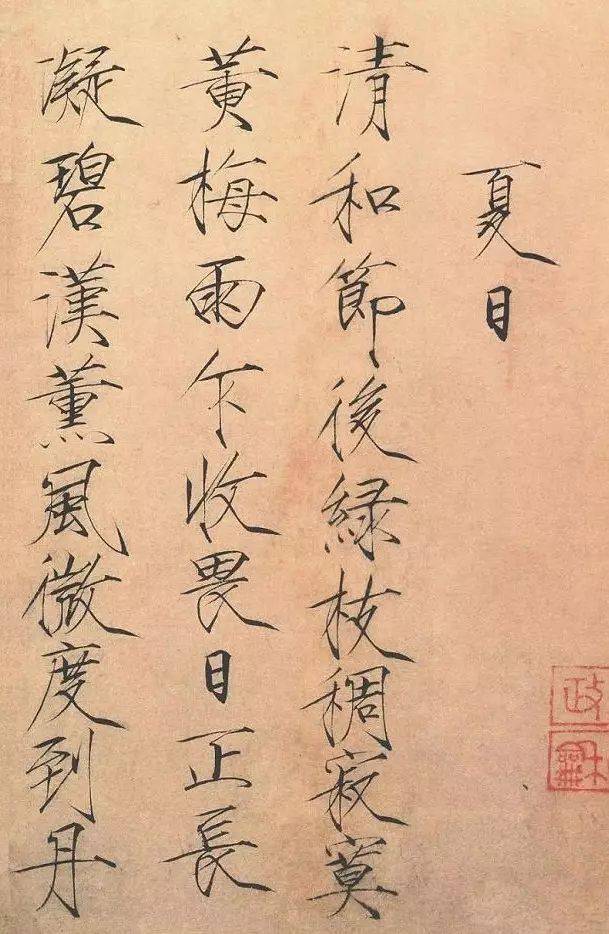 夏日
清和節後綠枝稠寂寞
黃梅雨乍收畏日正長
凝碧漢薰風微度到丹
政和